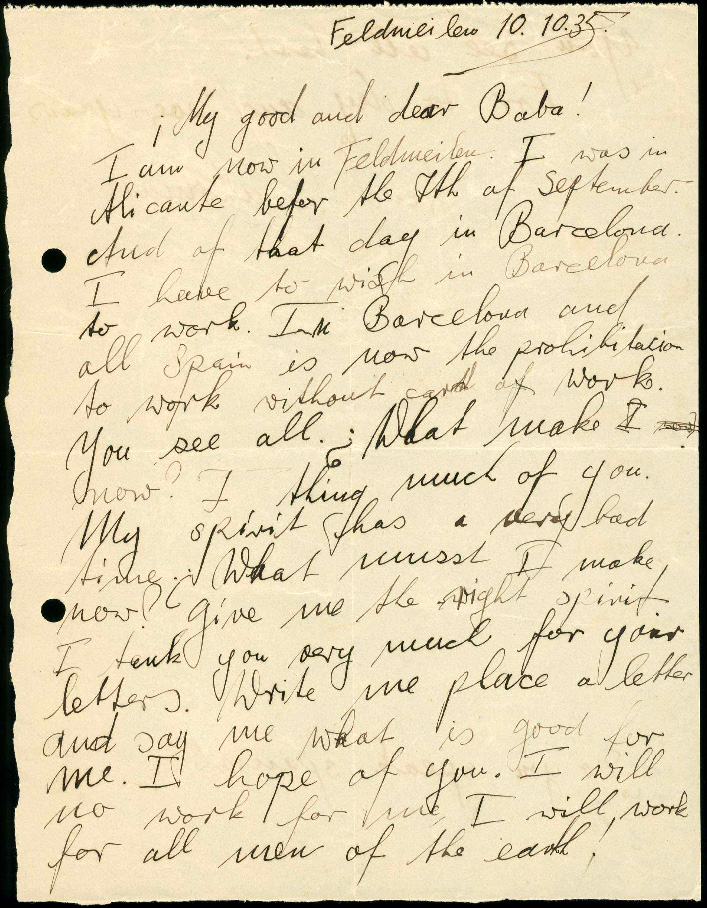 Feldmeilen 10. 10.35.
¡My good and dear Baba!
I am now in Feldmeilen. I was in
Alicante befor the 7th of September.
And of that day in Barcelona.
I have to wish in Barcelona
to work. In Barcelona and
all Spain is now the prohibitacion
to work without card of work.
You see all. ¿What make I
now? I thing much of you.
My spirit has a very bad
time. ¿What musst I make
now? Give me the right spirit
I tank you very much for your
letters. Write me place a letter
and say me what is good for
me. I hope of you. I will
no work for me, I will work
for all men of the earth!